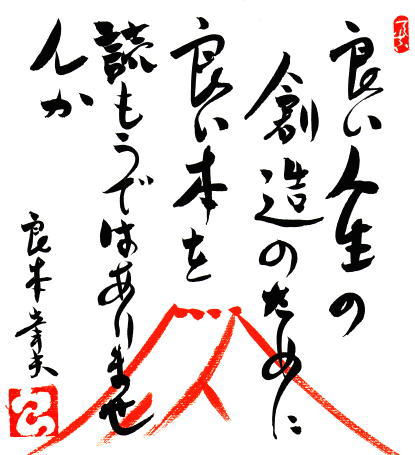 良い人生の
創造のために
良い本を
読もうではありませ
んか
良本幸夫